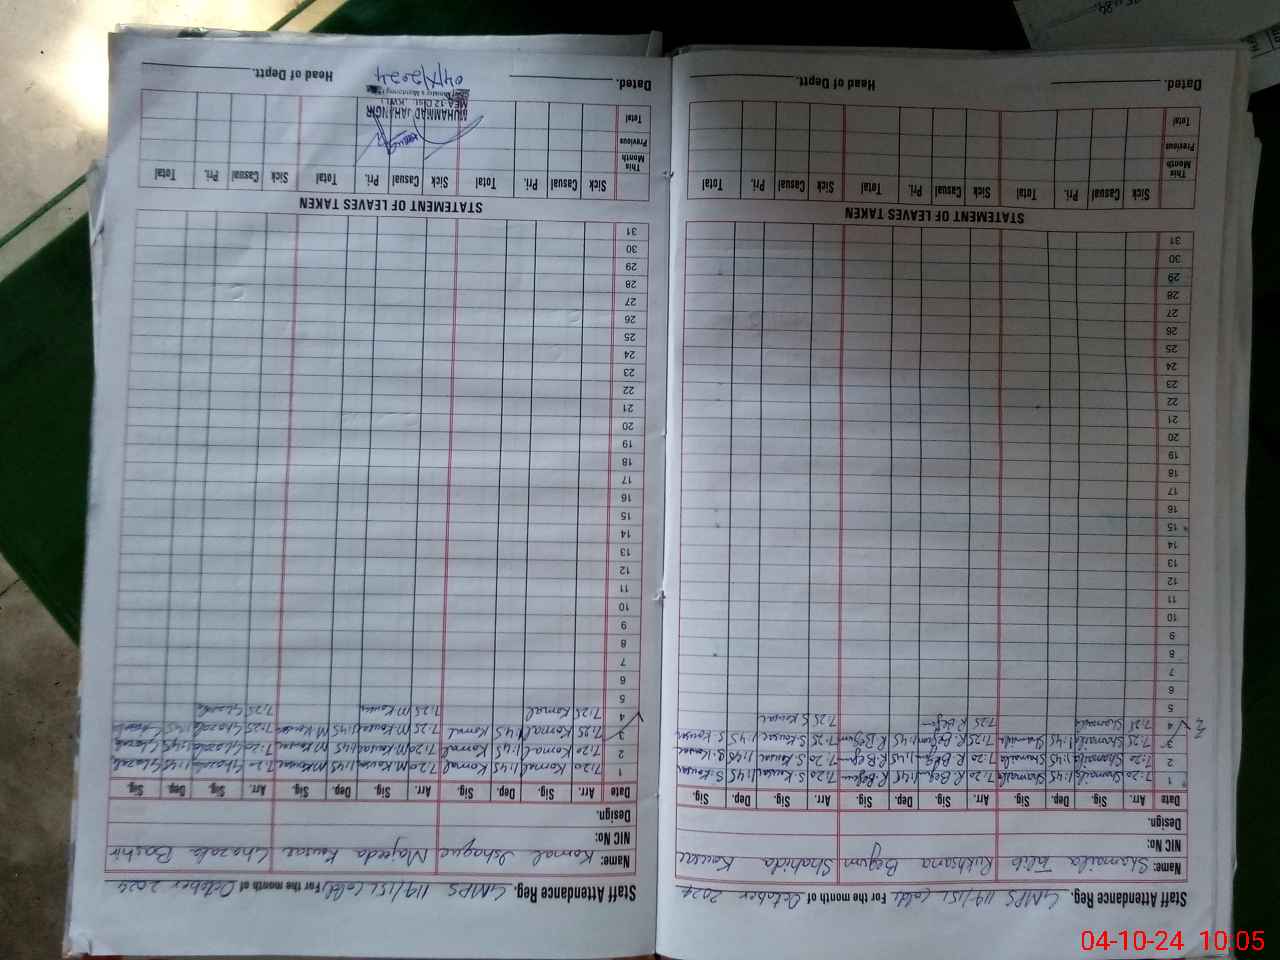 Staff Attendance Reg. GMPS 119/15L (old) For the month of October 2024
Name: Shamaila Talib Rukhsana Begum Shahida Kousar
NIC No:
Design.
Date Arr. Sig. Dep. Sig. Arr. Sig. Dep. Sig. Arr. Sig. Dep. Sig.
1 7:20 Shamaila 1:45 Shamaila 7:20 R.Begum 1:45 R.Begum 7:20 S.Kousar 1:45 S.Kousar
2 7:20 Shamaila 1:45 Shamaila 7:20 R.Begum 1:45 R.Begum 7:20 S.Kousar 1:45 S.Kousar
3 7:25 Shamaila 1:45 Shamaila 7:25 R.Begum 1:45 R.Begum 7:25 S.Kousar 1:45 S.Kousar
4 7:25 Shamaila 7:25 R.Begum 7:25 S.Kousar
5
6
7
8
9
10
11
12
13
14
15
16
17
18
19
20
21
22
23
24
25
26
27
28
29
30
31
STATEMENT OF LEAVES TAKEN
Sick Casual Pri. Total Sick Casual Pri. Total Sick Casual Pri. Total
This Month
Previous
Total
Dated. Head of Deptt.
Staff Attendance Reg. GMPS 119/15L (old) For the month of October 2024
Name: Komal Ishaque Majeeda Kousar Ghazala Bashir
NIC No:
Design.
Date Arr. Sig. Dep. Sig. Arr. Sig. Dep. Sig. Arr. Sig. Dep. Sig.
1 7:20 Komal 1:45 Komal 7:20 M.Kousar 1:45 M.Kousar 7:20 Ghazala 1:45 Ghazala
2 7:20 Komal 1:45 Komal 7:20 M.Kousar 1:45 M.Kousar 7:20 Ghazala 1:45 Ghazala
3 7:25 Komal 1:45 Komal 7:25 M.Kousar 1:45 M.Kousar 7:25 Ghazala 1:45 Ghazala
4 7:25 Komal 7:25 M.Kousar 7:25 Ghazala
5
6
7
8
9
10
11
12
13
14
15
16
17
18
19
20
21
22
23
24
25
26
27
28
29
30
31
STATEMENT OF LEAVES TAKEN
Sick Casual Pri. Total Sick Casual Pri. Total Sick Casual Pri. Total
This Month
Previous
Total
MUHAMMAD JAHANGIR
MEA-12 Dist. KWL
04/X/2024
Dated. Head of Deptt.
04-10-24 10:05